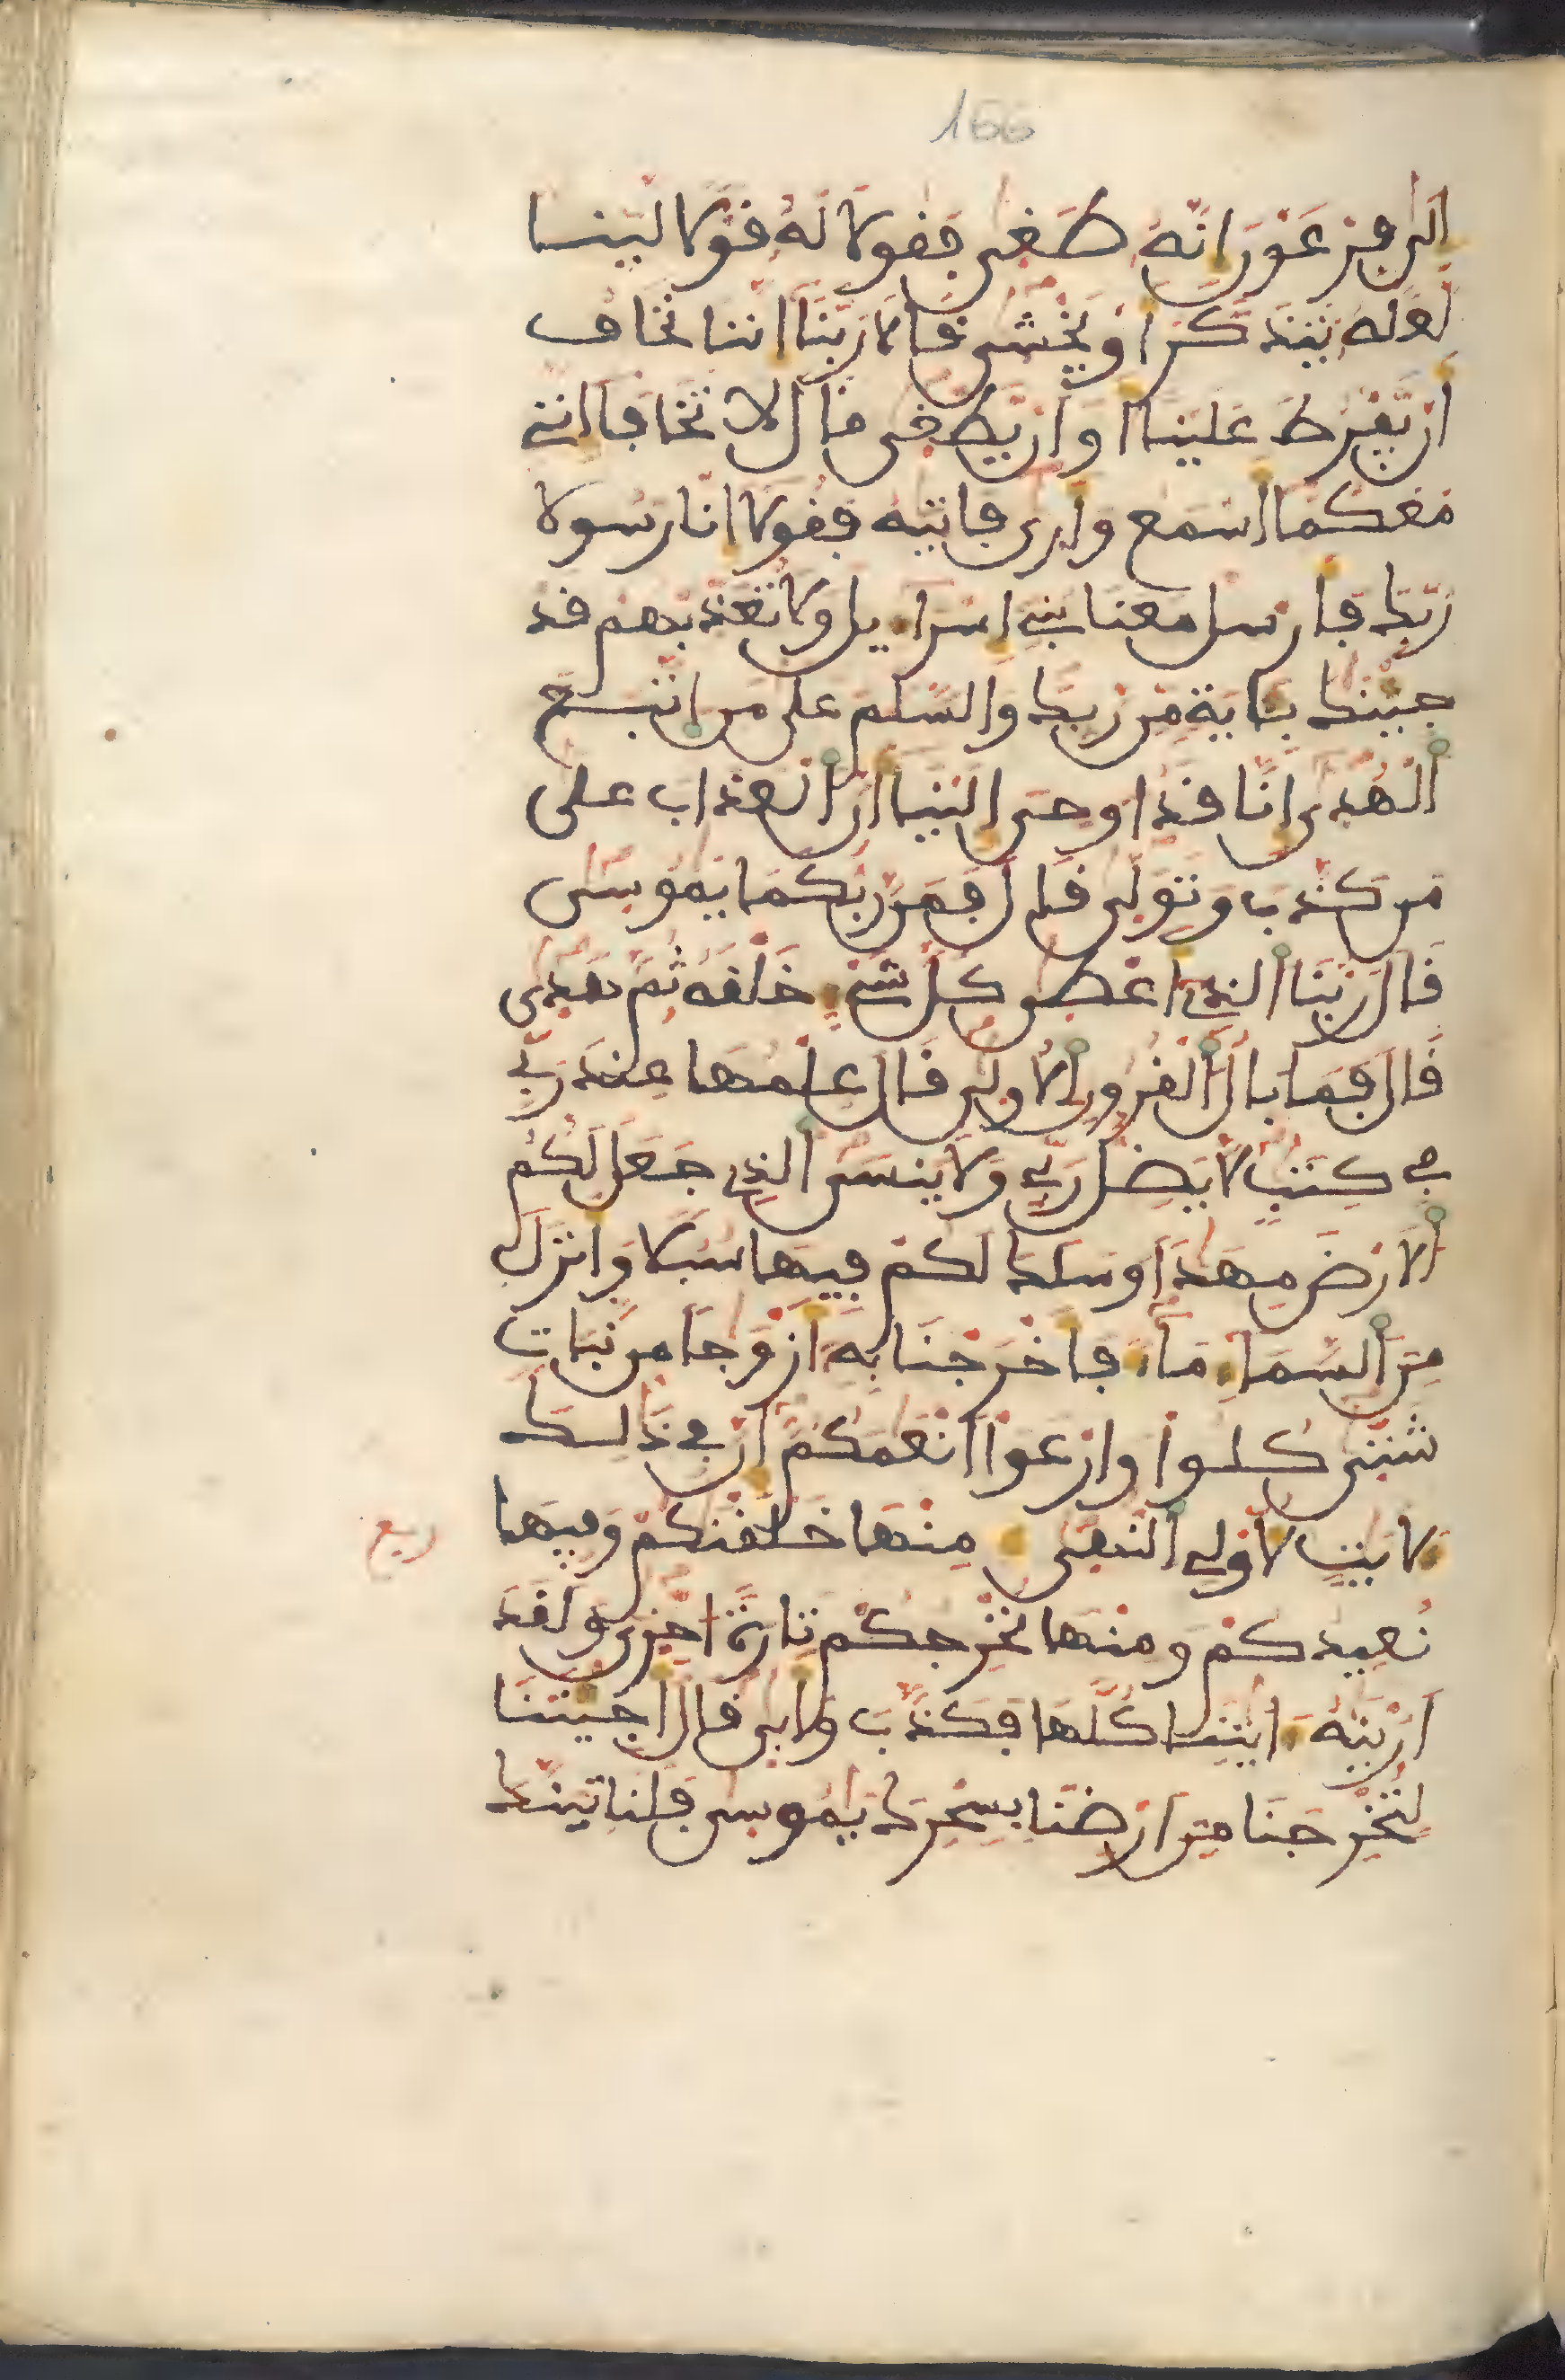 166
إلى فرعون إنه طغى فقولا له قولا لينا
لعله يتذكر أو يخشى قالا ربنا إننا نخاف
أن يفرط علينا أو أن يطغى قال لا تخافا إنني
معكما أسمع وأرى فأتيه فقولا إنا رسولا
ربك فأرسل معنا بني إسراءيل ولا تعذبهم قد
جئنك بئاية من ربك والسلم على من اتبع
الهدى إنا قد أوحي إلينا أن العذاب على
من كذب وتولى قال فمن ربكما يموسى
قال ربنا الذي أعطى كل شيء خلقه ثم هدى
قال فما بال القرون الأولى قال علمها عند ربي
في كتب لا يضل ربي ولا ينسى الذي جعل لكم
الأرض مهدا وسلك لكم فيها سبلا وأنزل
من السماء ماء فأخرجنا به أزوجا من نبات
شتى كلوا وارعوا أنعمكم إن في ذلك
لأيت لأولي النهى منها خلقنكم وفيها
ربع
نعيدكم ومنها نخرجكم تارة أخرى ولقد
أرينه ءايتنا كلها فكذب وأبى قال أجئتنا
لتخرجنا من أرضنا بسحرك يموسى فلناتينك